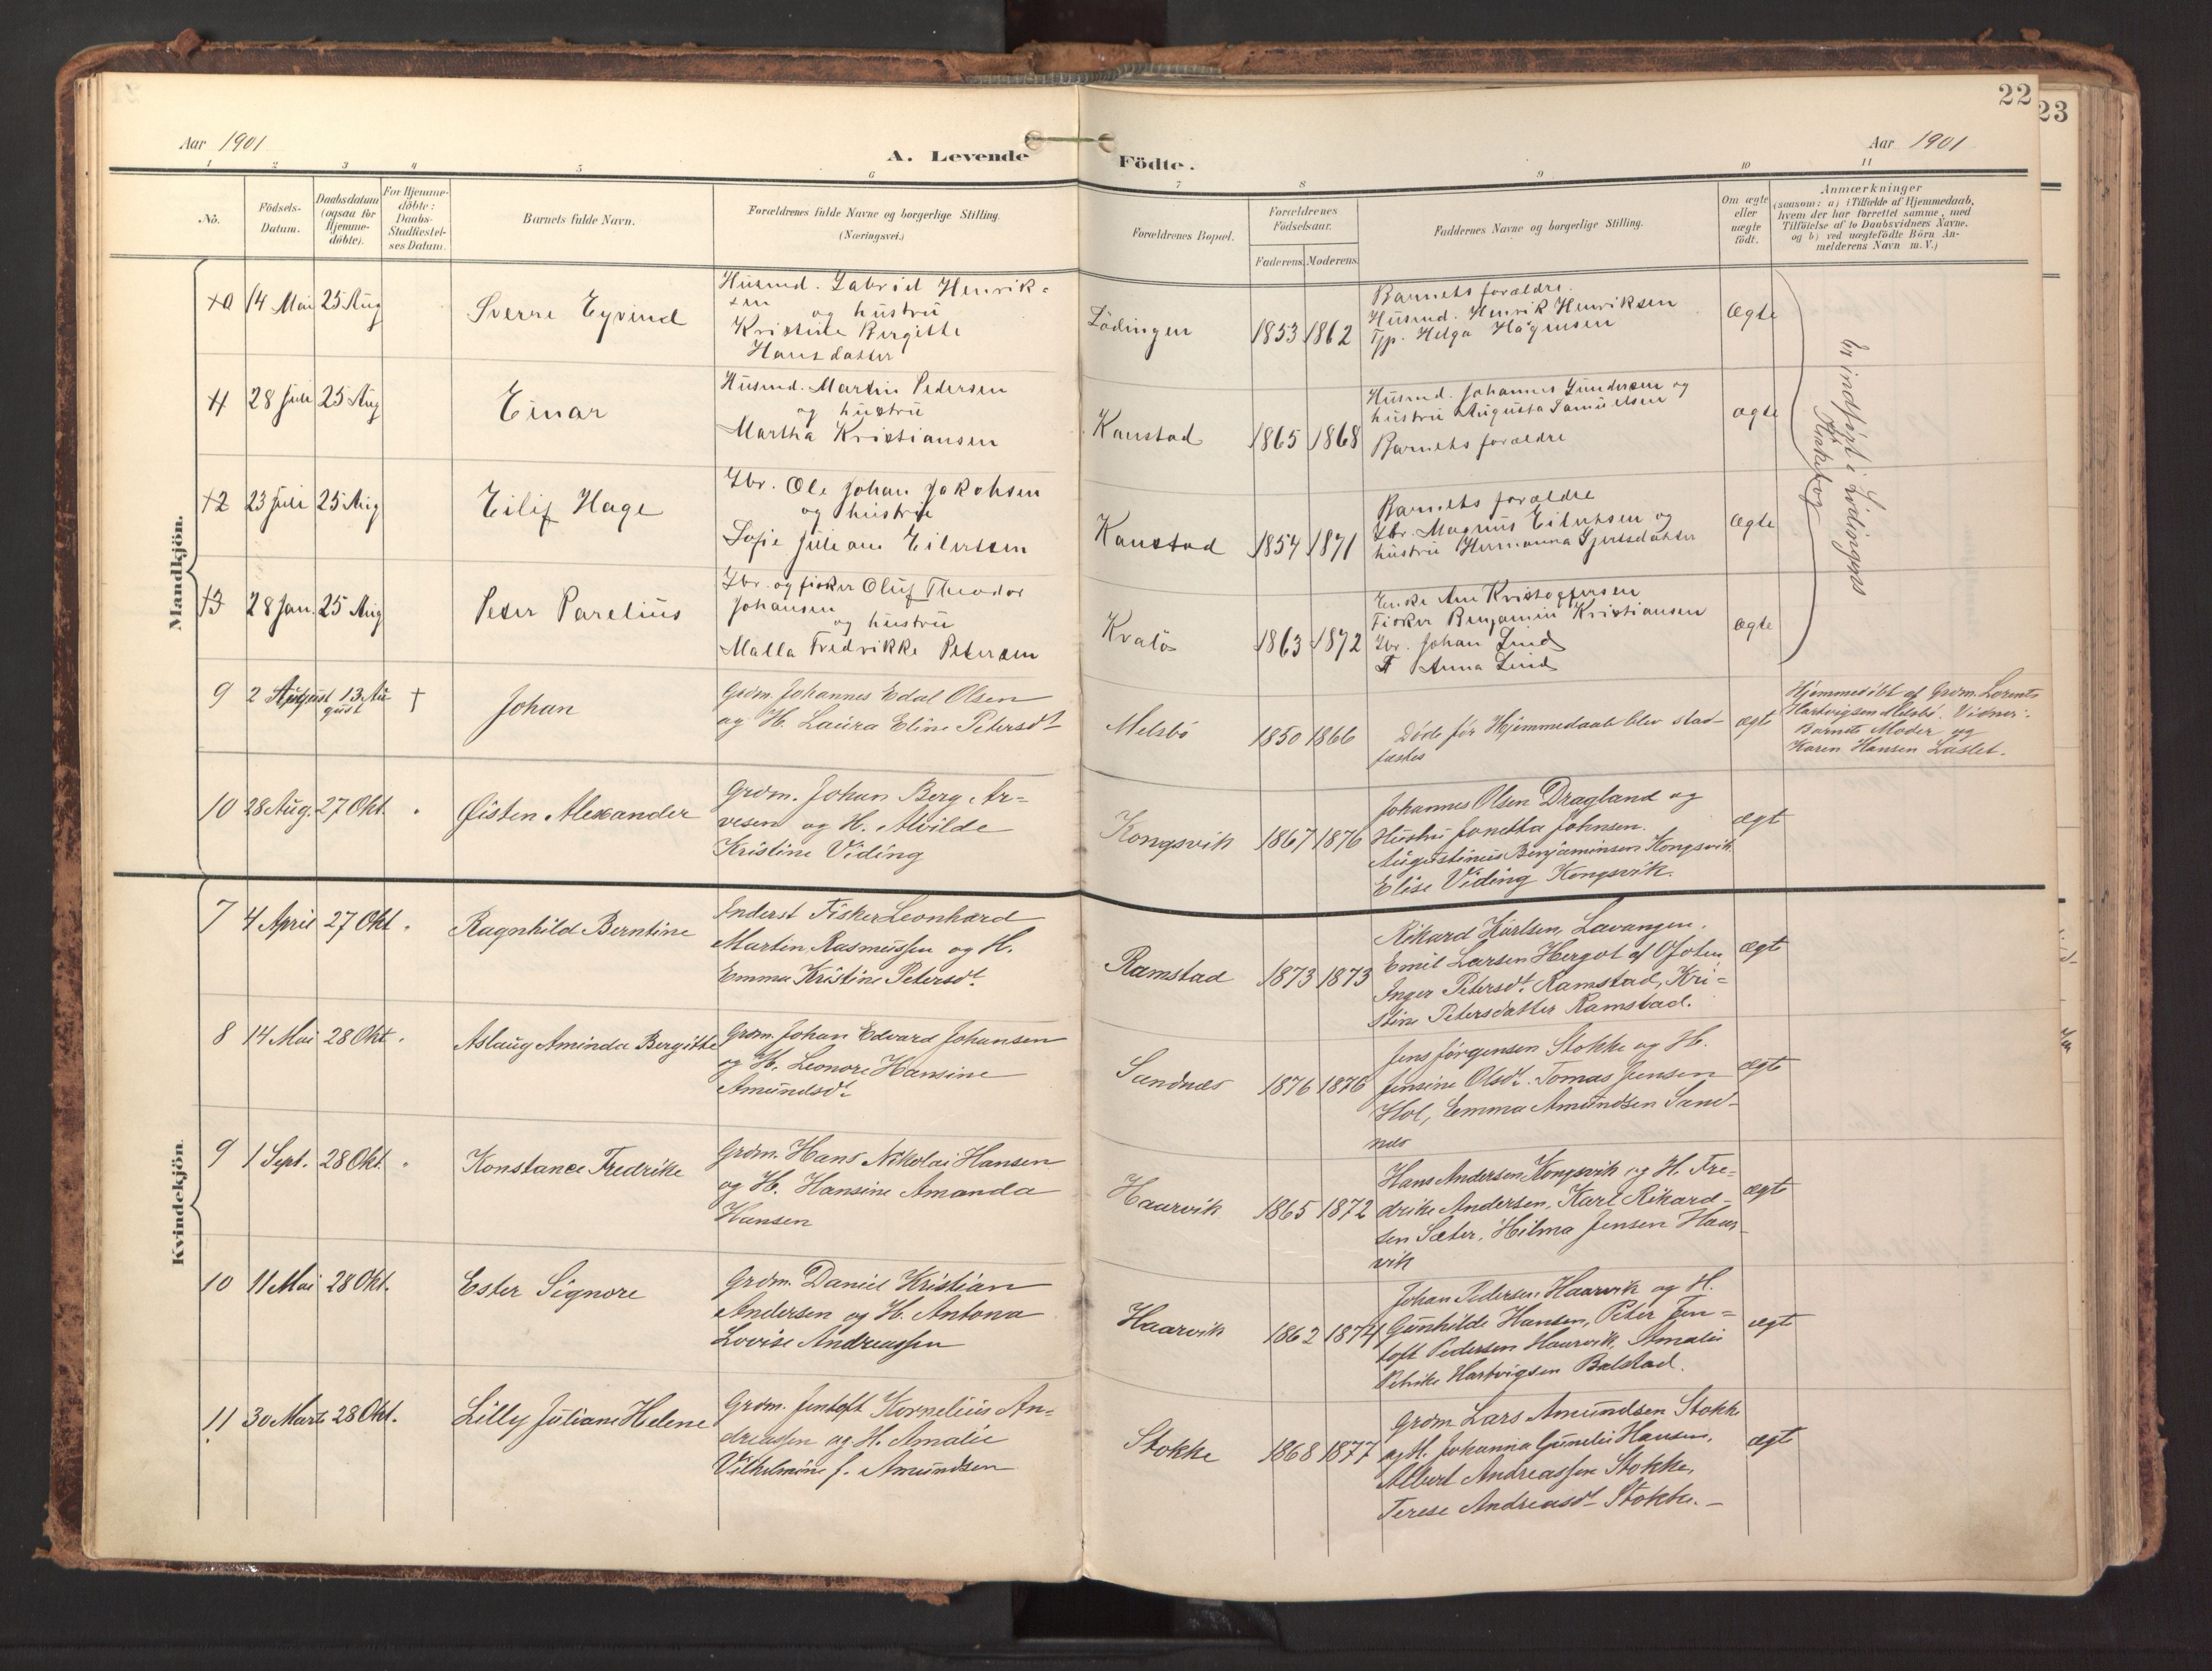 22
23
Aar 1901
A. Levende
Födte.
Aar 1901
1 2 3 4 5 6 7 8 9 10 11
No.
Födsels-
Datum.
Daabsdatum
(ogsaa for
Hjemme-
döbte).
For Hjemme-
döbte:
Daabs-
Stadfæstel-
ses Datum.
Barnets fulde Navn.
Forældrenes fulde Navne og borgerlige Stilling.
(Næringsvei.)
Forældrenes Bopæl.
Forældrenes
Födselsaar.
Faderens. Moderens.
Faddernes Navne og borgerlige Stilling.
Om ægte
eller
uægte
födt.
Anmærkninger
(saasom: a) i Tilfælde af Hjemmedaab,
hvem der har forrettet samme, med
Tilföielse af to Daabsvidners Navne.
og b) ved uægtefödte Börn An-
melderens Navn m. V.)
Mandkjön.
14 Mai 25 Aug
Sverre Eyvind
Husmd. Gabriel Henrik-
sen
og hustru
Kristine Bergitte
Hansdatter
Lödingen
1853 1862
Barnets forældre.
Husmd. Henrik Henriksen
Tjp. Helga Hågensen
Ægte
28 Juli 25 Aug
Einar
Husmd. Martin Pedersen
og hustru
Martha Kristiansen
Kanstad
1865 1868
Husmd. Johannes Gundersen og
hustru Augusta Samuelsen
Barnets forældre
ægte
En indført i Lødingens
Kirkebog
23 Juli 25 Aug
Eilif Hage
Gbr. Ole Johan Jakobsen
og hustru
Sofie Juliane Eilertsen
Kanstad
1854 1871
Barnets forældre
Gbr. Magnus Eilertsen og
hustru Hermanna Gjertsdatter
Ægte
28 Jan. 25 Aug
Peder Parelius
Gbr. og fisker Oluf Theodor
Johansen
og hustru
Malla Fredrikke Petersen
Kvalö
1863 1872
Enke Ane Kristoffersen
Fisker Benjamin Kristiansen
Gbr. Johan Lind
Anna Lind
Ægte
9 2 August 13 Au-
gust †
Johan
Grdm. Johannes Edal Olsen
og H. Laura Eline Petersdt
Melsbö
1850 1866
Døde før Hjemmedaab blev stad-
fæstes
ægte
Hjemmedöbt af Grdm. Lorents
Hartvigsen Melsbö. Vidner:
Barnets Moder og
Karen Hansen Laslet.
10 28 Aug. 27 Okt.
Øisten Alexander
Grdm. Johan Berg Ar-
vesen og H. Alvilde
Kristine Viding
Kongsvik
1867 1876
Johannes Olsen Dragland og
Hustru Jonetta Johnsen.
Augustinus Benjaminsen Kongsvik
Elise Viding Kongsvik.
ægt
Kvindekjön.
7 4 April 27 Okt.
Ragnhild Berntine
Inderst Fisker Leonhard
Martin Rasmussen og H.
Emma Kristine Petersdt.
Ramstad
1873 1873
Rikard Karlsen, Lavangen.
Emil Larsen Hergot af Ofoten
Inger Petersdt. Ramstad, Kri-
stine Petersdatter Ramstad.
ægt
8 14 Mai 28 Okt.
Aslaug Aminda Bergitte
Grdm. Johan Edvard Johansen
og H. Leonore Hansine
Amundsdt.
Sandnæs
1876 1876
Jens Jörgensen Stokke og H.
Jensine Olsdt. Tomas Jensen
Hol, Emma Amundsen Sand-
næs
ægt
9 1 Sept. 28 Okt.
Konstance Fredrike
Grdm. Hans Nikolai Hansen
og H. Hansine Amanda
Hansen
Haarvik
1865 1872
Hans Andersen Kongsvik og H. Fre-
drike Andersen, Karl Rikard-
sen Sæter, Hilma Jensen Haar-
vik
ægt
10 11 Mai 28 Okt.
Ester Signore
Grdm. Daniel Kristian
Andersen og H. Antona
Lovise Andreassen
Haarvik
1862 1874
Johan Pedersen Haarvik og H.
Gunhilde Hansen, Peter Jen-
toft Pedersen Haarvik, Amalie
Petrike Hartvigsen Balstad.
ægt
11 30 Marts 28 Okt.
Lilly Juliane Helene
Grdm. Jentoft Kornelius An-
dreassen og H. Amalie
Vilhelmine f. Amundsen
Stokke
1868 1877
Grdm Lars Amundsen Stokke
og H. Johanna Hansen,
Albert Andreassen Stokke,
Terese Andreasdt Stokke.
ægt